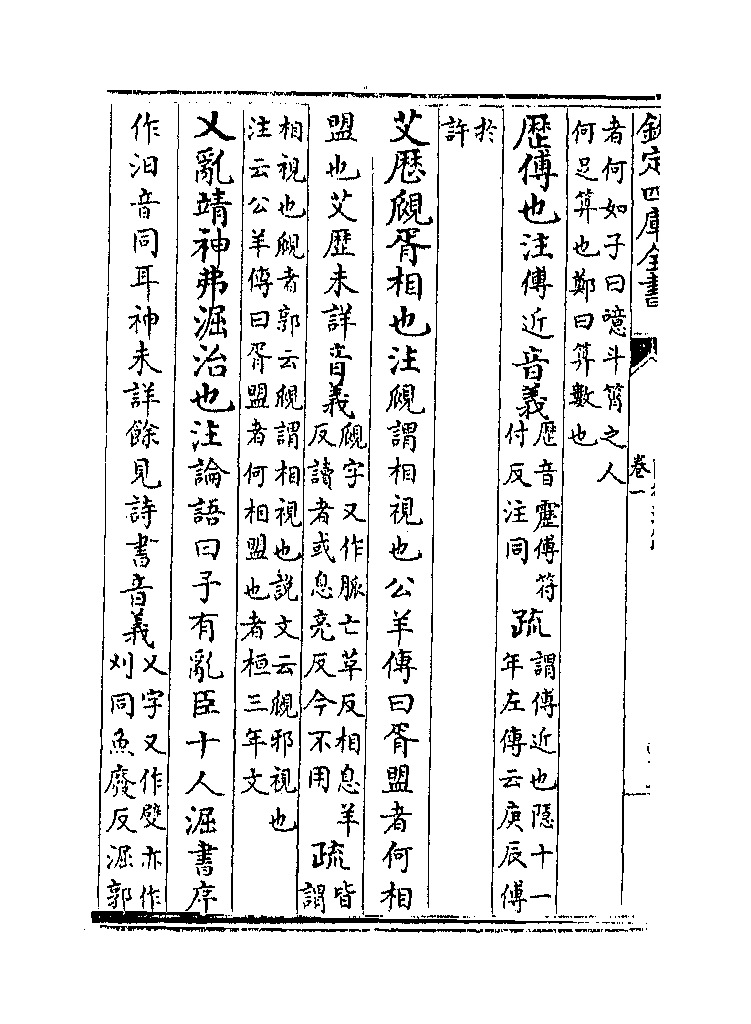 欽定四庫全書
卷一
者何如子曰噫斗筲之人
何足算也鄭曰算數也
歴傅也注傅近音義
歴音靂傅符
付反注同
疏
謂傅近也隱十一
年左傳云庚辰傅
於
許
艾歴覛胥相也注覛謂相視也公羊傳曰胥盟者何相
盟也艾歴未詳音義
覛字又作脈亡革反相息羊
反讀者或息亮反今不用
疏
皆
謂
相視也覛者郭云覛謂相視也説文云覛邪視也
注云公羊傳曰胥盟者何相盟也者桓三年文
乂亂靖神弗淈治也注論語曰予有亂臣十人淈書序
作汨音同耳神未詳餘見詩書音義
乂字又作㜸亦作
刈同魚廢反淈郭